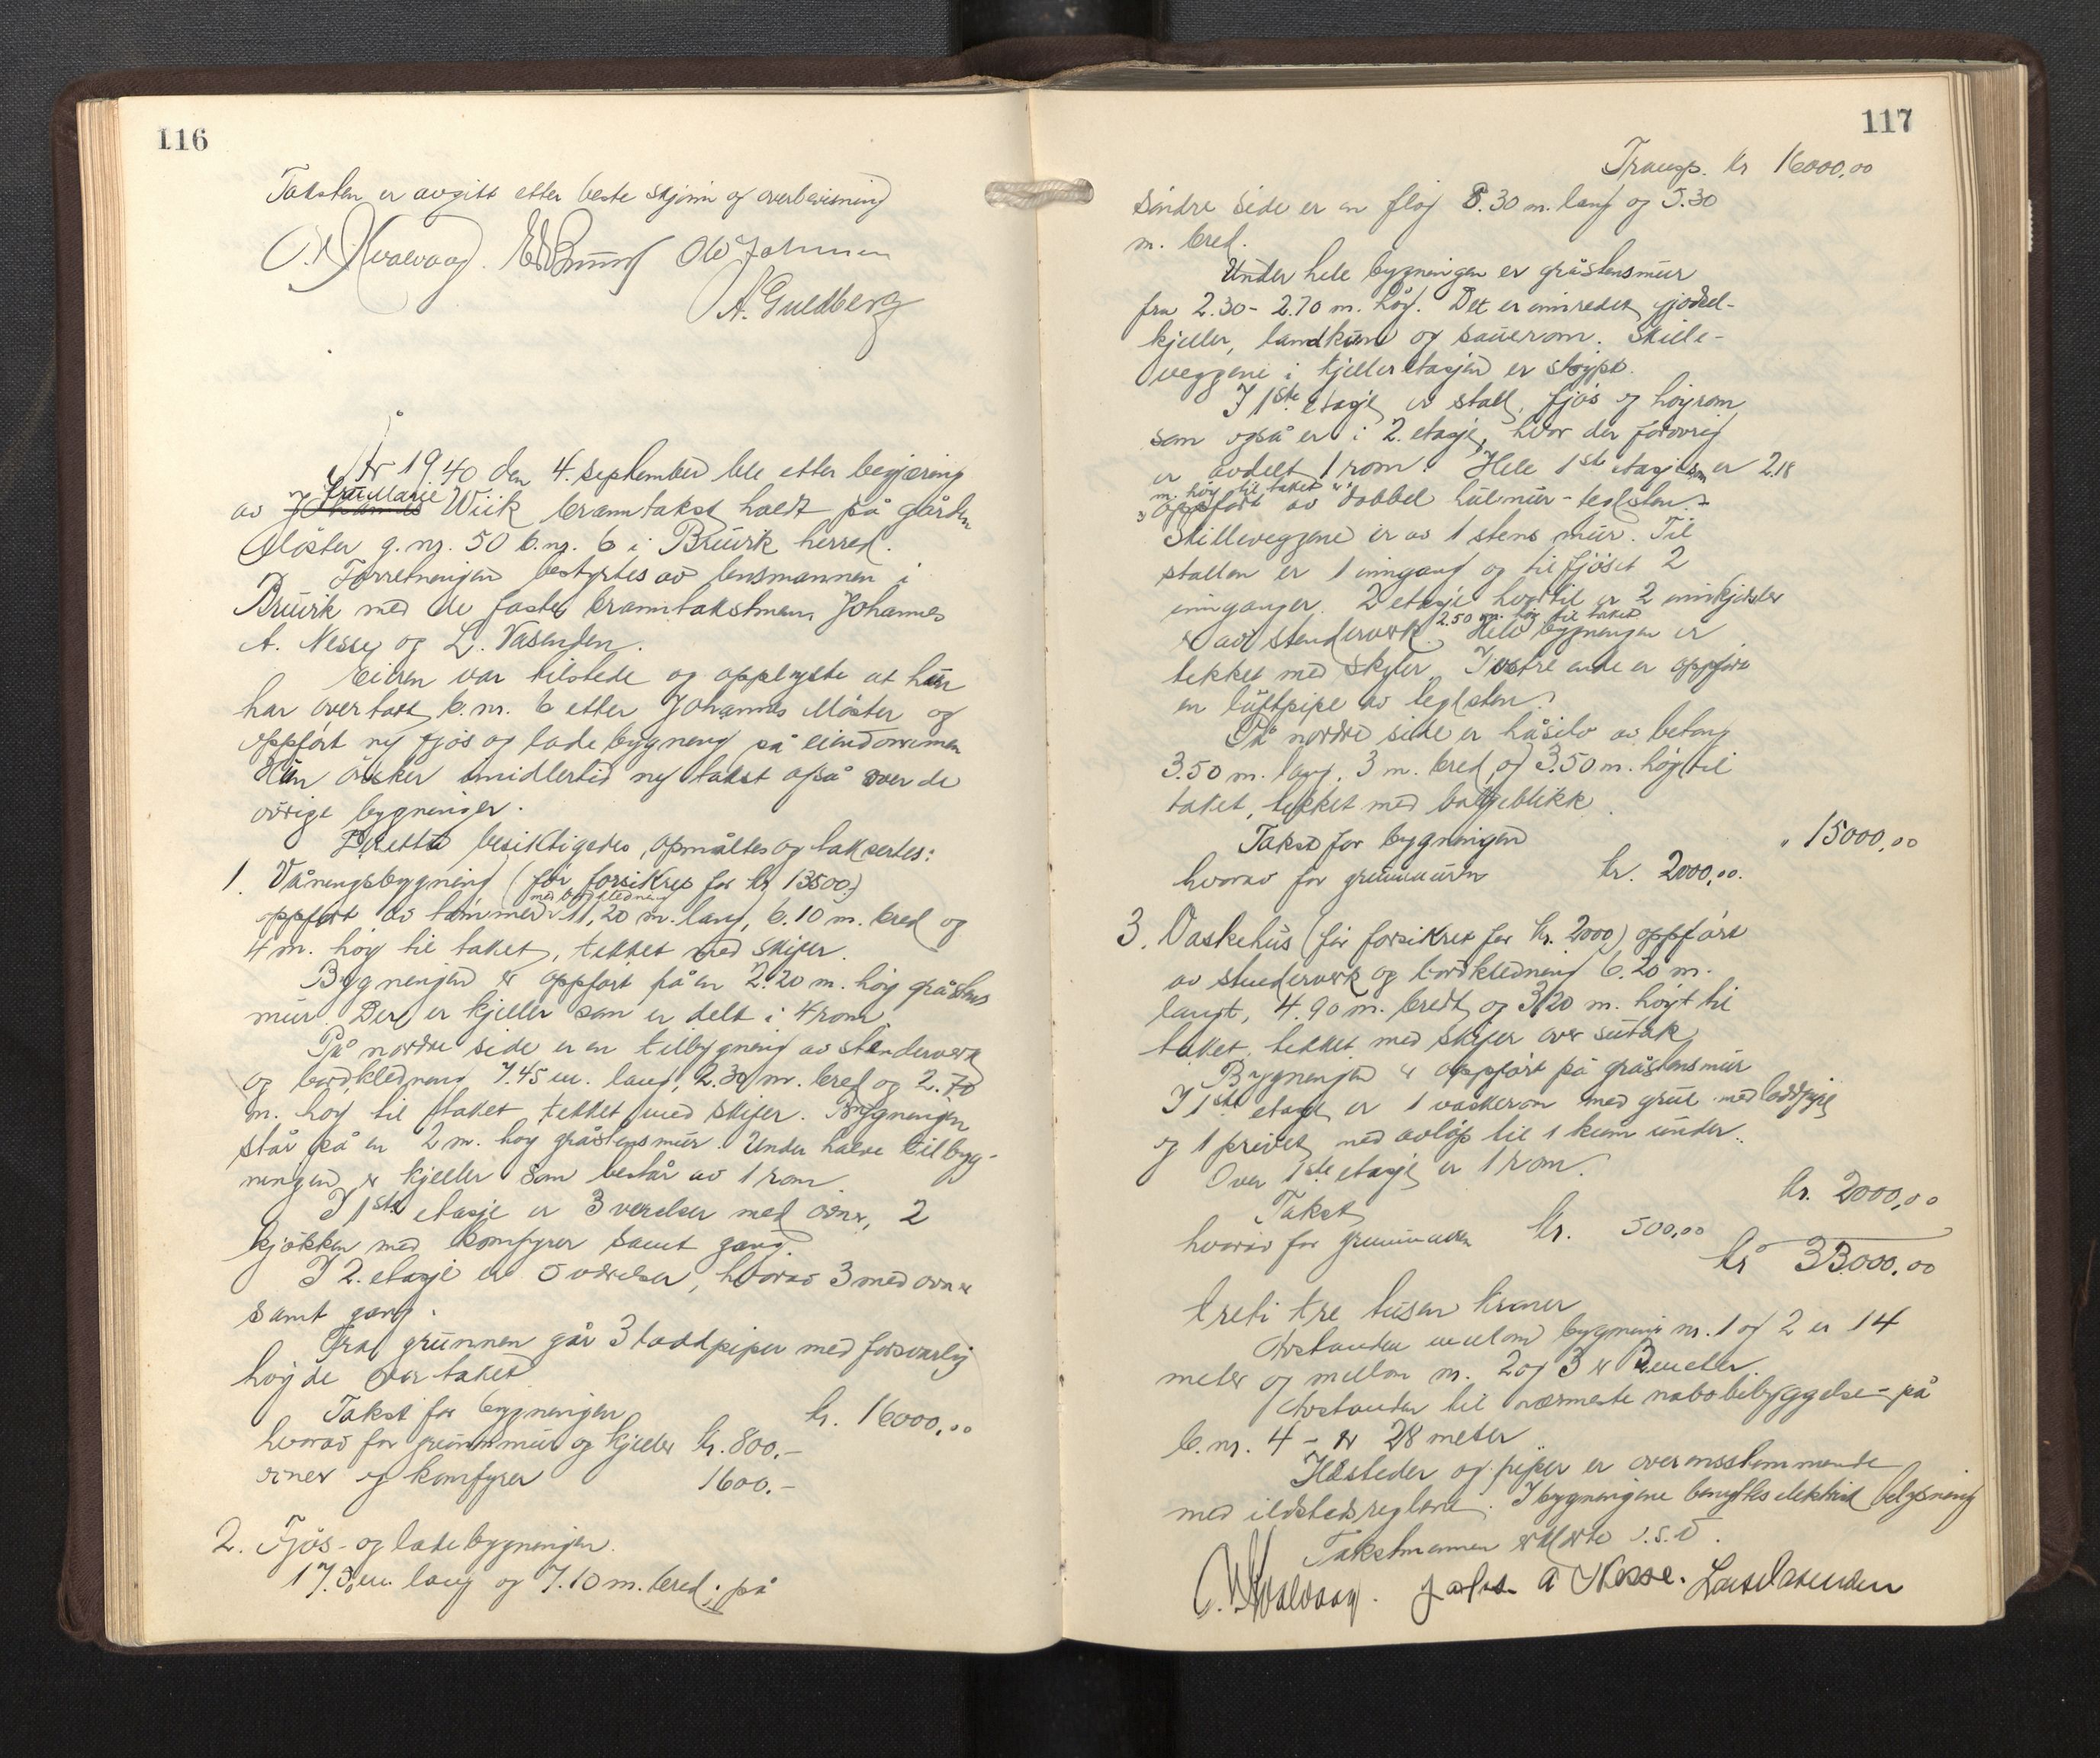 116
Taksten er avgitt etter beste skjönn og overbevisning
O. Hvalvaag. Ole Johnsen
A. Guldberg
År 1940 den 4. september ble etter begjæring
av Johannes Fru Marie Wiik branntakst holdt på gården
Möster g.nr. 50 b.nr. 6 i Bruvik herred.
Forretningen bestyrtes av lensmannen i
Bruvik med de faste branntakstmenn Johannes
A. Nesse og L. Vasenden.
Eieren var tilstede og opplyste at hun
har overtatt b.nr. 6 etter Johannes Möster og
oppfört ny fjös og ladebygning på eiendommen
Hun önsker imidlertid ny takst også over de
övrige bygninger.
Deretter besiktigedes, opmåltes og taksertes:
1. Våningsbygning (för forsikret for kr 13500.-)
oppfört av tömmer med bordkledning 11,20 m. lang, 6.10 m. bred og
4 m. höy til taket, tekket med skifer.
Bygningen er oppfört på en 2.20 m. höy gråstens
mur. Der er kjeller som er delt i 4 rom
På nordre side er en tilbygning av stenderverk
og bordkledning 7.45 m. lang, 2.30 m. bred og 2.70
m. höy til taket, tekket med skifer. Bygningen
står på en 2 m. höy gråstensmur. Under halve tilbyg-
ningen er kjeller som består av 1 rom
I 1ste etasje er 3 værelser med ovner, 2
kjökken med komfyrer samt gang.
I 2. etasje er 5 værelser, hvorav 3 med ovner
samt gang.
Fra grunnen går 3 loddpiper med forsvarlig
höyde over taket
Takst for bygningen kr. 16000,00
hvorav for grunnmur og kjeller kr. 800.-
ovner og komfyrer 1600.-
2. Fjös- og ladebygningen.
17.3 m. lang og 7.10 m. bred; på
117
Transp. kr 16000,00
söndre side er en flöy 8.30 m. lang og 5.30
m. bred.
Under hele bygningen er gråstensmur
fra 2.30 - 2.70 m. höy. Det er innredet gjödsel-
kjeller, landkum og sauerom. Skille-
veggene i kjelleretasjen er stöypt.
I 1ste etasje er stall, fjös og höyrom,
som også er i 2. etasje, hvor der forövrig
er avdelt 1 rom. Hele 1ste etasje som er 2.18
m. höy til taket er
oppfört av dobbel hulmur - teglsten.
Skilleveggene er av 1 stens mur. Til
stallen er 1 inngang og til fjöset 2
innganger. 2 etasje hvortil er 2 innkjörsler
er av stenderverk 2.50 m. höy til taket. Hele bygningen er
tekket med skifer. I vestre ende er oppfört
en luftpipe av teglsten.
På nordre side er håsilo av betong
3.50 m. lang, 3 m. bred og 3.50 m. höy til
taket, tekket med bölgeblikk.
Takst for bygningen " 15000,00
hvorav for grunnmuren kr. 2000,00.
3. Vaskehus (för forsikret for kr. 2000) oppfört
av stenderverk og bordkledning 6.20 m.
langt, 4.90 m. bredt og 3.20 m. höyt til
taket, tekket med skifer over sutak
Bygningen er oppfört på gråstensmur
I 1ste etasje er 1 vaskerom med grue med loddpipe
og 1 privet med avlöp til 1 kum under.
Over 1ste etasje er 1 rom.
Takst kr. 2000,00
hvorav for grunnmuren kr. 500,00
kr 33000,00
tretitre tusen kroner
Avstanden mellom bygning nr. 1 og 2 er 14
meter og mellom nr. 2 og 3 er 3 meter.
Avstanden til nærmeste nabobebyggelse - på
b.nr. 4 - er 28 meter
Ildsteder og piper er overensstemmende
med ildstedsreglene. I bygningene benyttes elektrisk belysning
Takstmennen
O. Hvalvaag. Johs. A Nesse. Lars Vasenden